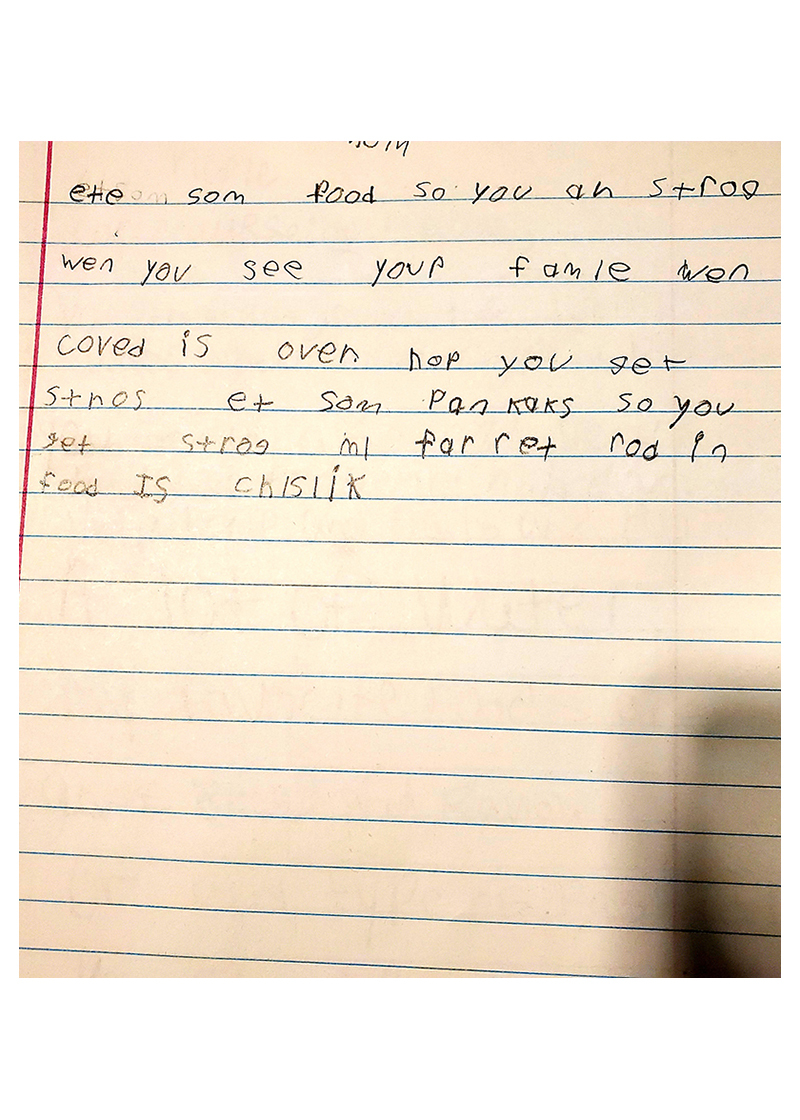 ete som food so you an strog
wen you see your famle wen
coved is over hop you get
stros et som Pan kaks so you
get strog mi far ret rod in
food IS chislik